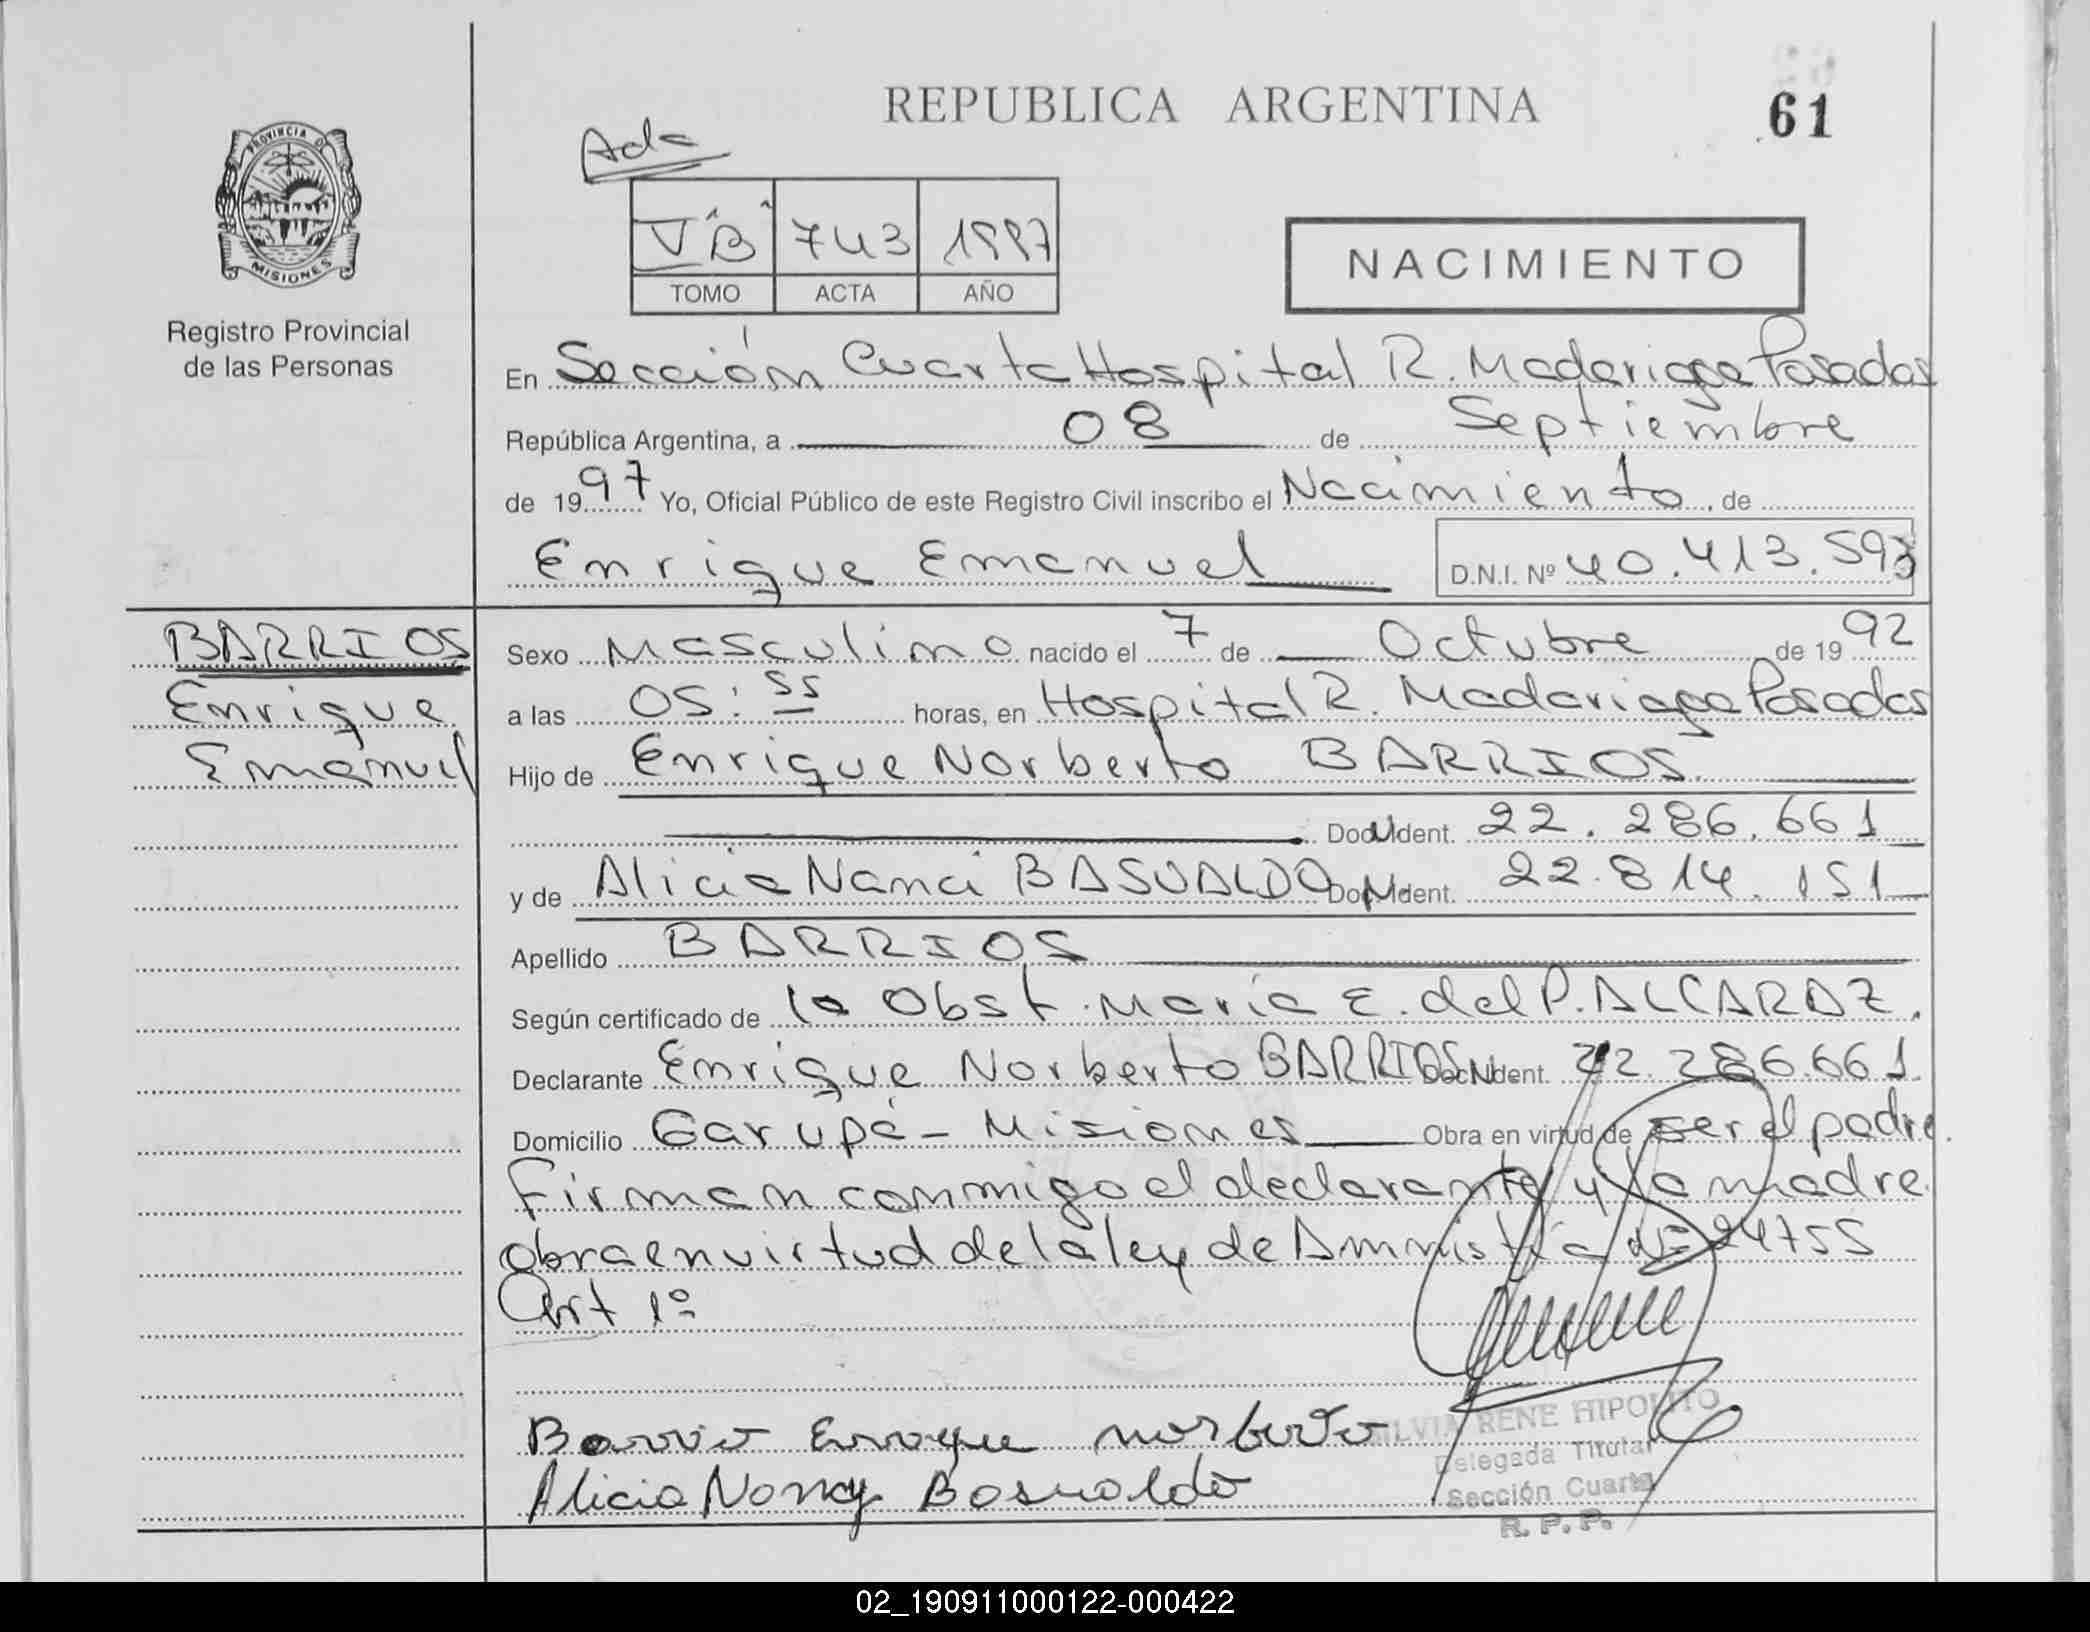 REPUBLICA ARGENTINA
61
PROVINCIA DE
MISIONES
Registro Provincial
de las Personas
Ada
V "B" 743 1997
TOMO ACTA AÑO
NACIMIENTO
En Sección Cuarta Hospital R. Madariaga Posadas
República Argentina, a 08 de Septiembre
de 1997 Yo, Oficial Público de este Registro Civil inscribo el Nacimiento, de
Enrique Emanuel D.N.I. Nº 40.413.593
BARRIOS
Enrique
Emanuel
Sexo Masculino nacido el 7 de Octubre de 1992
a las 05:55 horas, en Hospital R. Madariaga Posadas
Hijo de Enrique Norberto BARRIOS
Doc. Ident. 22.286.661
y de Alicia Nanci BASUALDO Doc. Ident. 22.814.151
Apellido BARRIOS
Según certificado de la Obst. María E. del P. ALCARAZ.
Declarante Enrique Norberto BARRIOS Doc. Ident. 22.286.661.
Domicilio Garupá - Misiones Obra en virtud de ser el padre.
Firman conmigo el declarante y la madre
obra en virtud de la ley de Amnistía Nº 24755
Art 1º
Barrio Enrique norberto
Alicia Nancy Basualdo
SILVIA RENE HIPOLITO
Delegada Titular
Sección Cuarta
R. P. P.
02_190911000122-000422